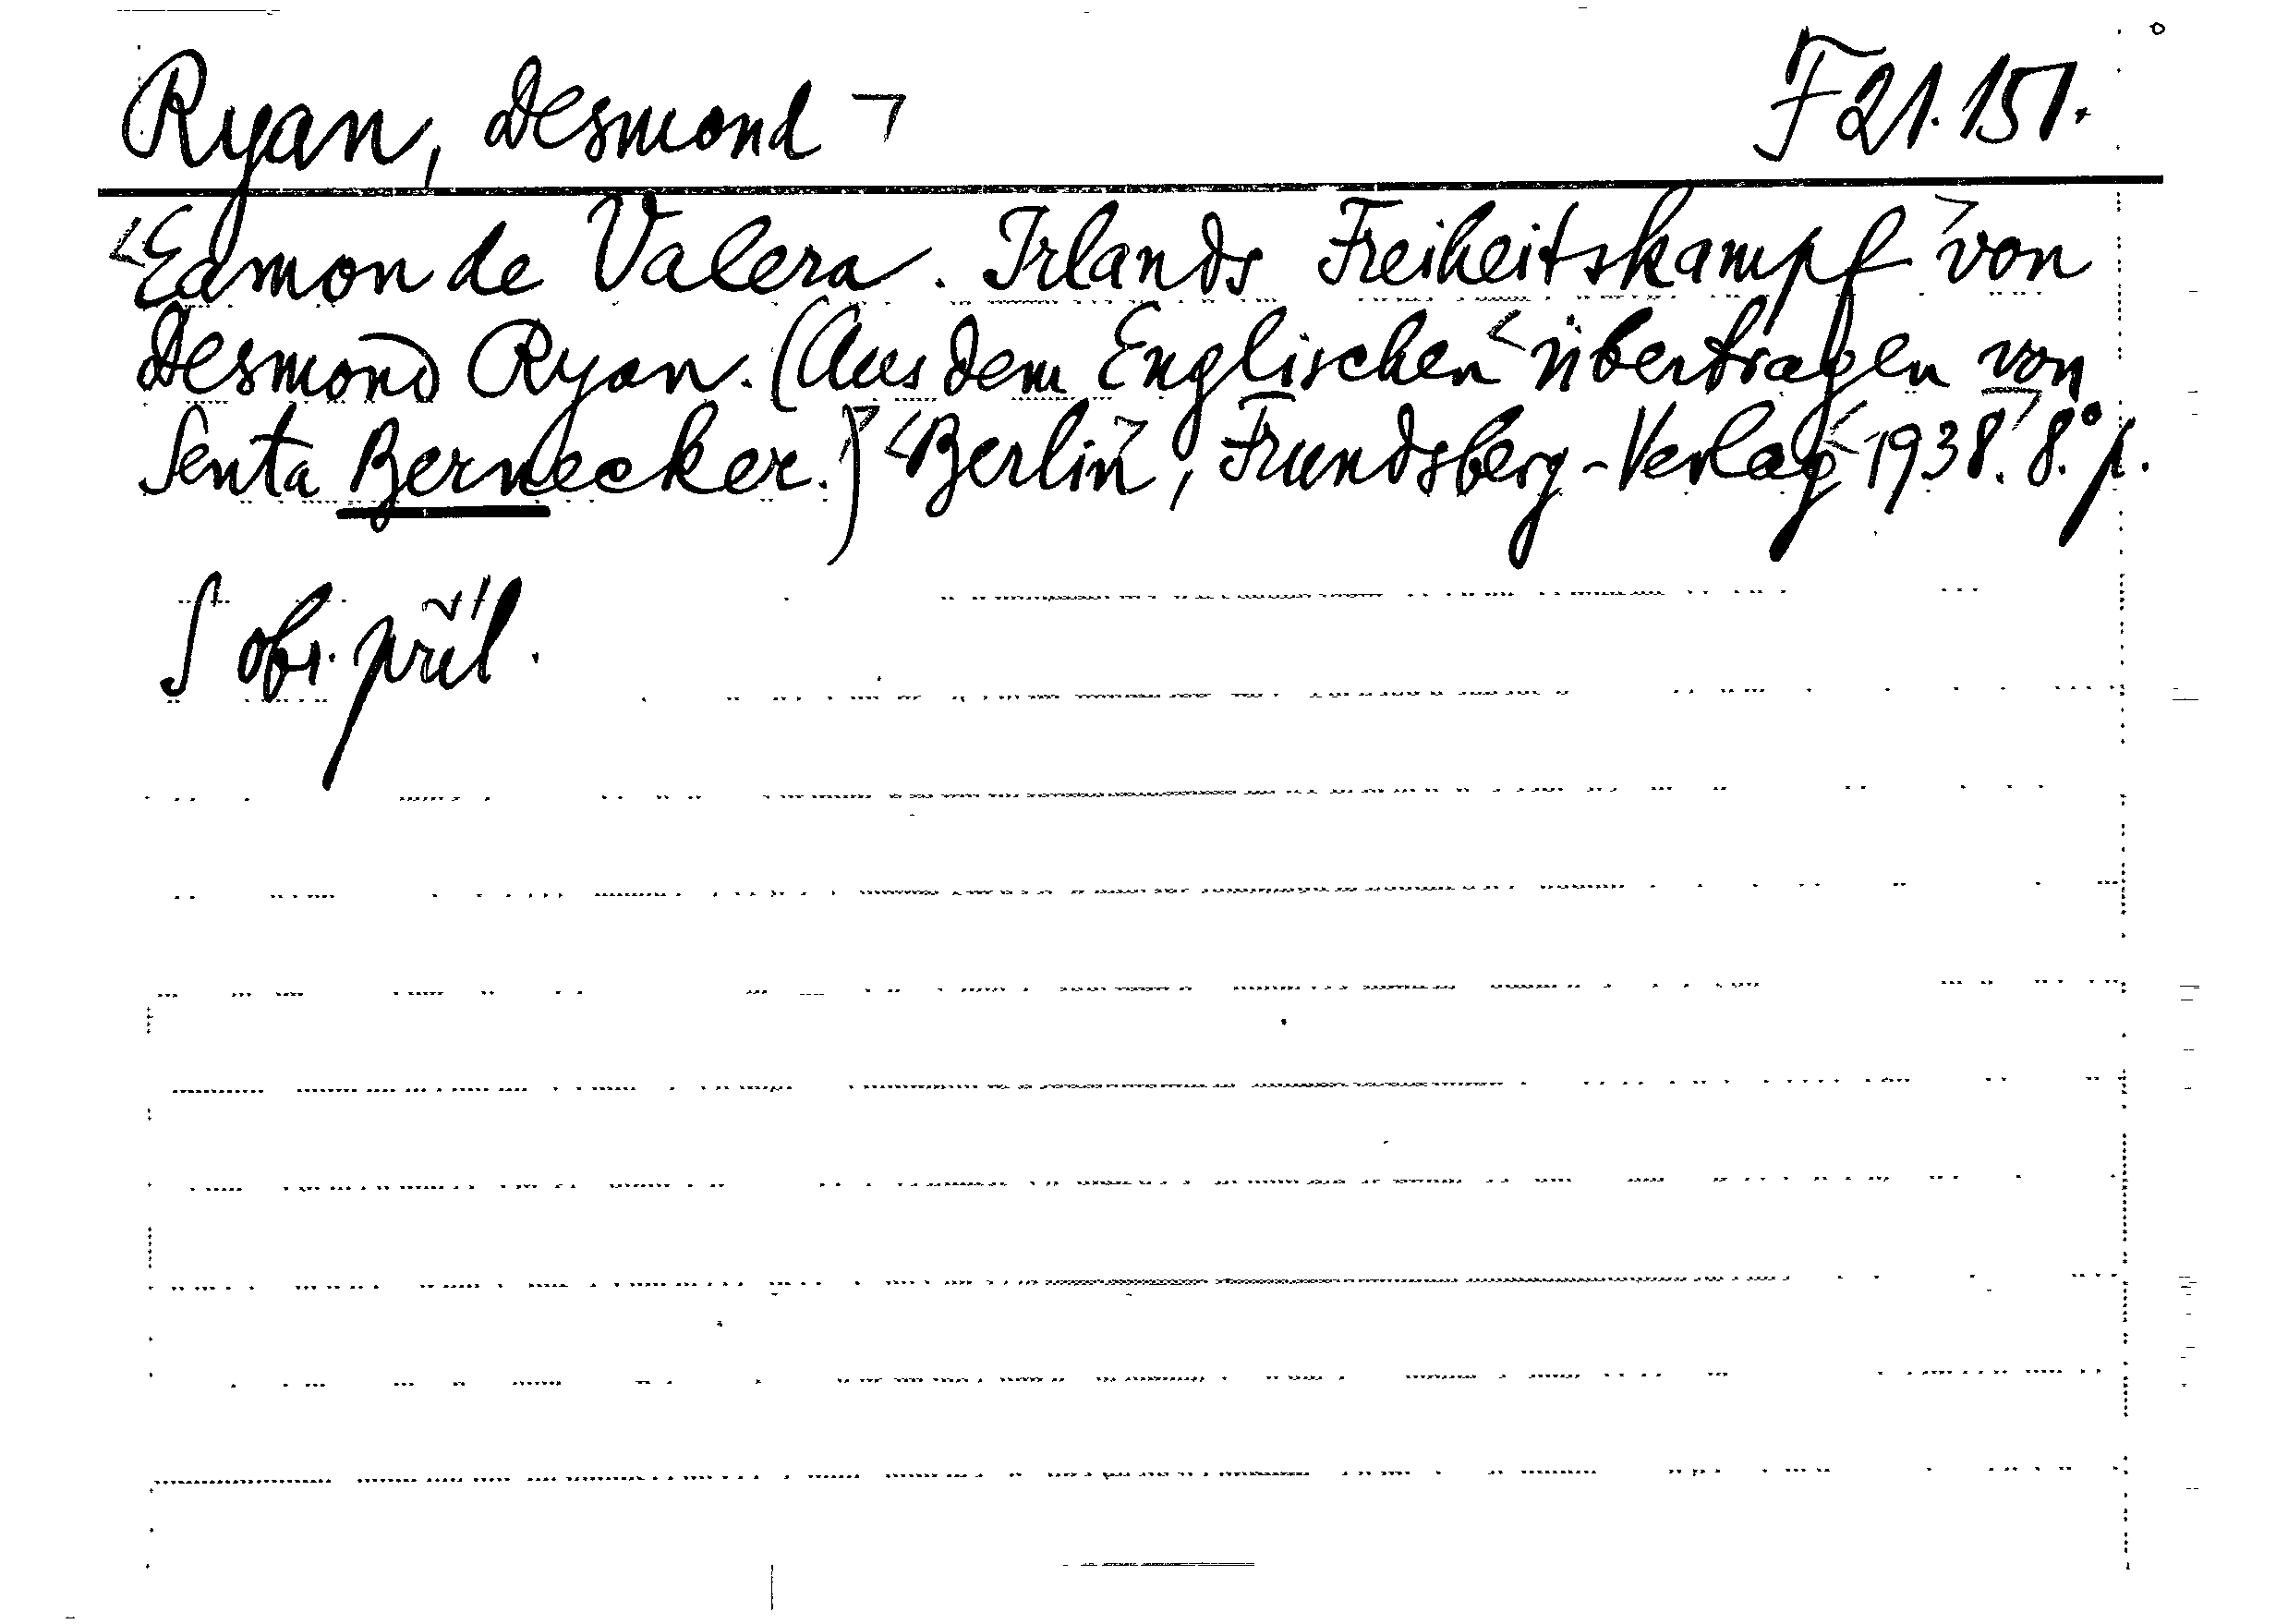 Ryan, Desmond ¬ F 21.151.
<Eamon de Valera. Irlands Freiheitskampf¬ von
Desmond Ryan. (Aus dem Englischen <übertragen von
Senta Bernecker.)¬ <Berlin¬, Frundsberg-Verlag <1938.¬ 8.° p.
S obr. příl.